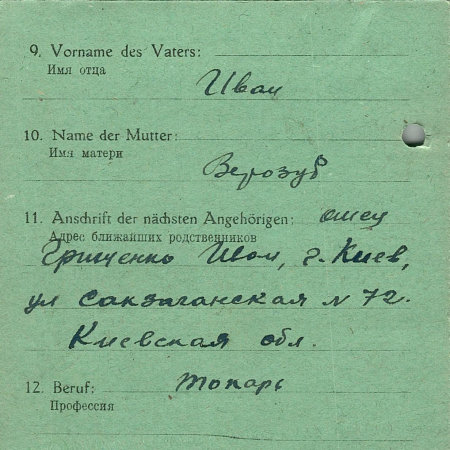 9. Vorname des Vaters:
Имя отца
Иван
10. Name der Mutter:
Имя матери
Верозуб
11. Anschrift der nächsten Angehörigen: отец
Адрес ближайших родственников
Грищенко Иван, г. Киев,
ул Саксаганская N 72.
Киевская обл.
12. Beruf: токарь
Профессия